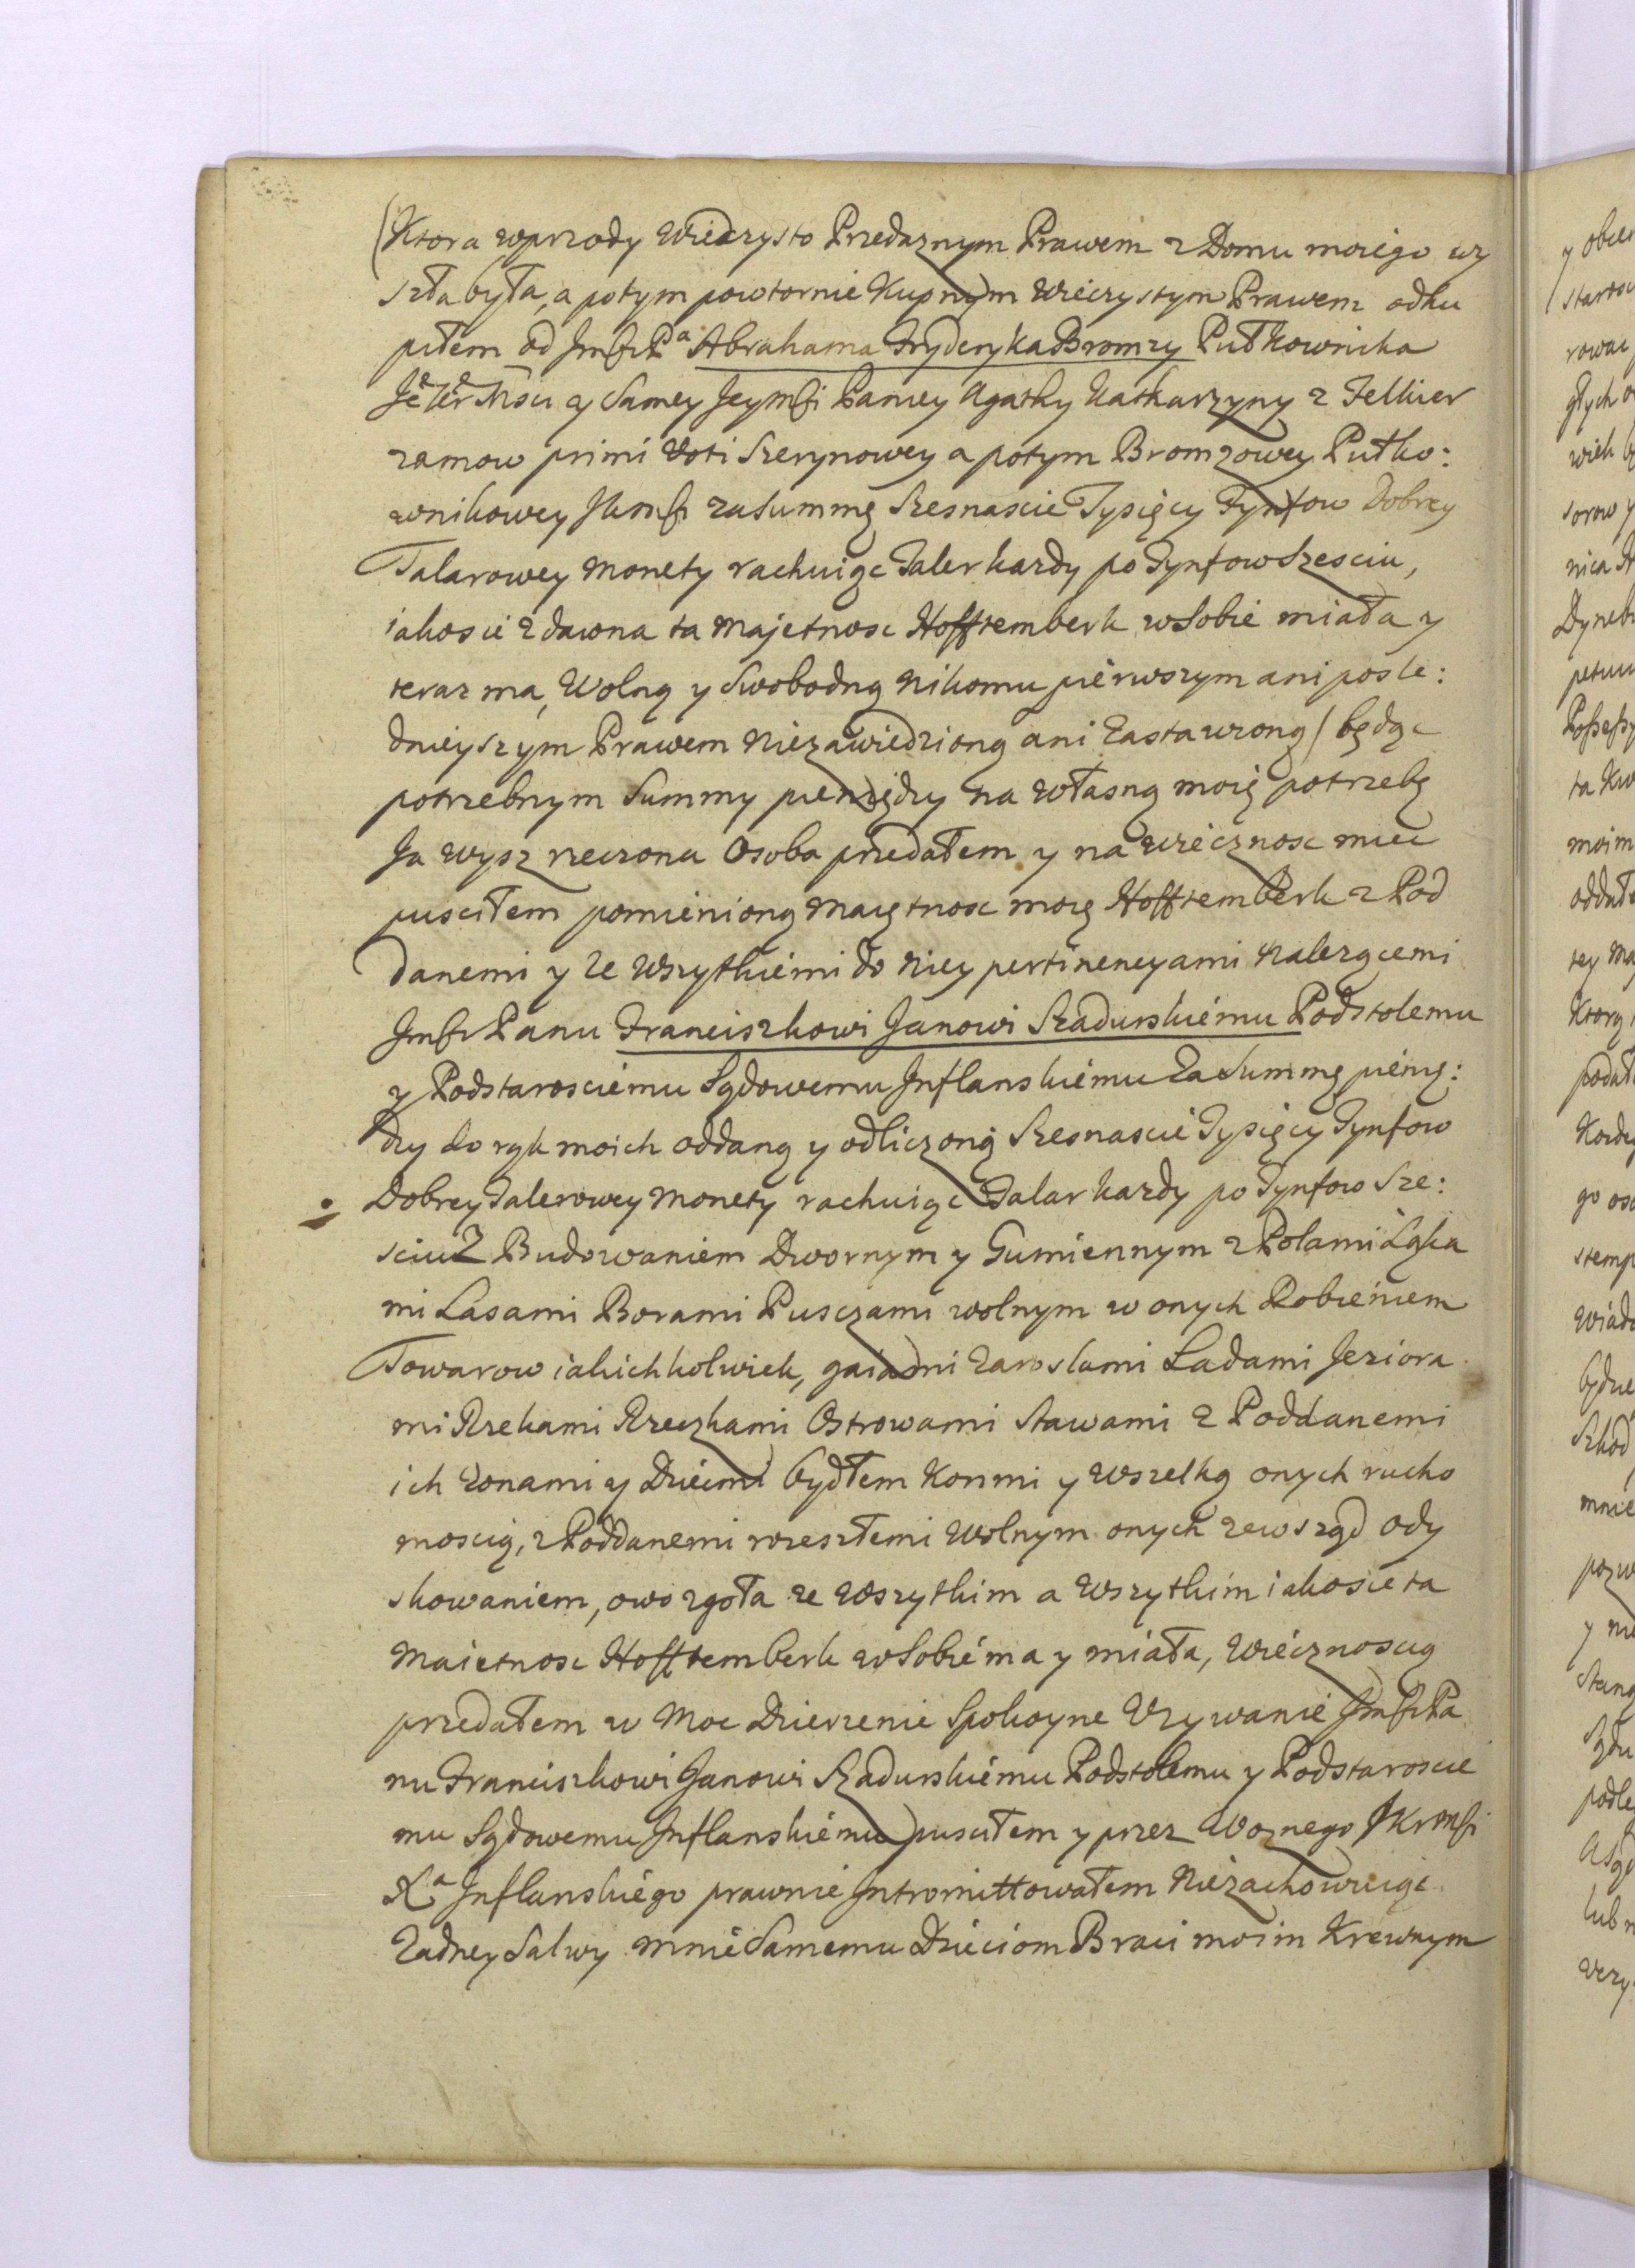 (Ktora wprzody Wieczysto Przedaznym Prawem z Domu moiego wy
szła była, a potym powtornie Kupnym Wieczystym Prawem odku
piłem od Jmści Pa Abrahama Fryderyka Bromzy Pułkownika
y Samey Jeymści Paniey Agatky Katharzyny z Felkier
zamow primi Voti Szerynowey a potym Bromzowey Pułko:
wnikowey za Summę Szesnascie Tysięcy Tynfow Dobrey
Talarowey Monety rachuiąc Taler kazdy po Tynfow Szesciu,
iakosie zdawna ta Majetnosc Hofftemberk w Sobie miała y
teraz ma, Wolną y Swobodną Nikomu pierwszym ani posle:
dnieyszym Prawem Niezawiedzioną ani Zastawioną) będąc
potrzebnym Summy pieniędzy na Własną moię potrzebę
Ja wysz rzeczona Osoba przedałem y na Wiecznosc miec
pusciłem pomienioną Maiętnosc moię Hofftemberk z Pod
danemi y Ze Wszytkiemi do Niey pertinencyami Nalezącemi
Jmści Panu Franciszkowi Janowi Szadurskiemu Podstolemu
y Podstarosciemu Sądowemu Inflanskiemu Za Summę pienię:
dzy do rąk moich oddaną y odliczoną Szesnascie Tysięcy Tynfow
Dobrey Talerowey Monety rachuiąc Talar kazdy po Tynfow Sze:
sciu Z Budowaniem Dwornym y Gumiennym z Polami Łąka
mi Lasami Borami Pusczami wolnym w onych Robieniem
Towarow iakichkolwiek, gaiami Zaroslami Ladami Jeziora
mi Rzekami Rzeczkami Ostrowami Stawami z Poddanemi
ich Zonami y Dziecmi bydłem Konmi y Wszelką onych rucho
moscią, z Poddanemi rzeszłemi Wolnym onych zewsząd ody
skowaniem, owo zgoła ze Wszytkim a Wszytkim iakosie ta
Maietnosc Hofftemberk w Sobie ma y miała, Wiecznoscią
przedałem w Moc Dzierzenie Spokoyne Uzywanie Jmści Pa
nu Franciszkowi Janowi Szadurskiemu Podstolemu y Podstaroscie
mu Sądowemu Inflanskiemu pusciłem y przez Woznego JKrmści
Xa Inflanskiego prawnie Intromittowałem Niezachowuiąc
Zadney Salwy mnie Samemu Dzieciom Braci moim Krewnym